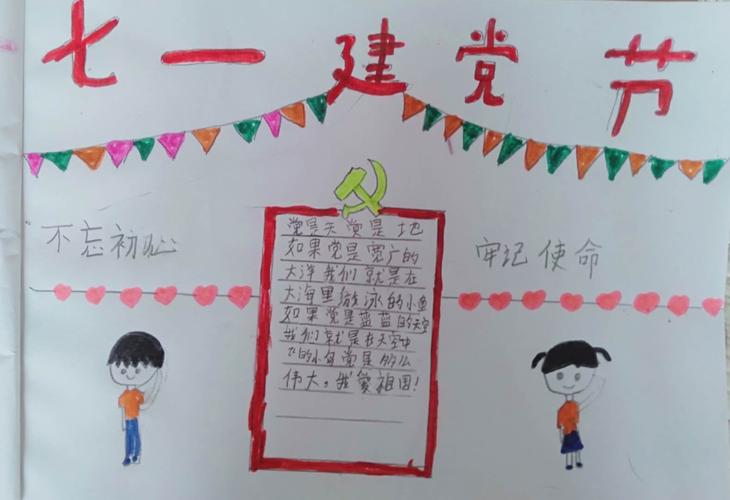 七一建党节
不忘初心
牢记使命
党是天党是地
如果党是宽广的
大洋我们就是在
大海里游泳的小鱼
如果党是蓝蓝的天空
我们就是在天空中
飞的小鸟党是那么
伟大。我爱祖国！